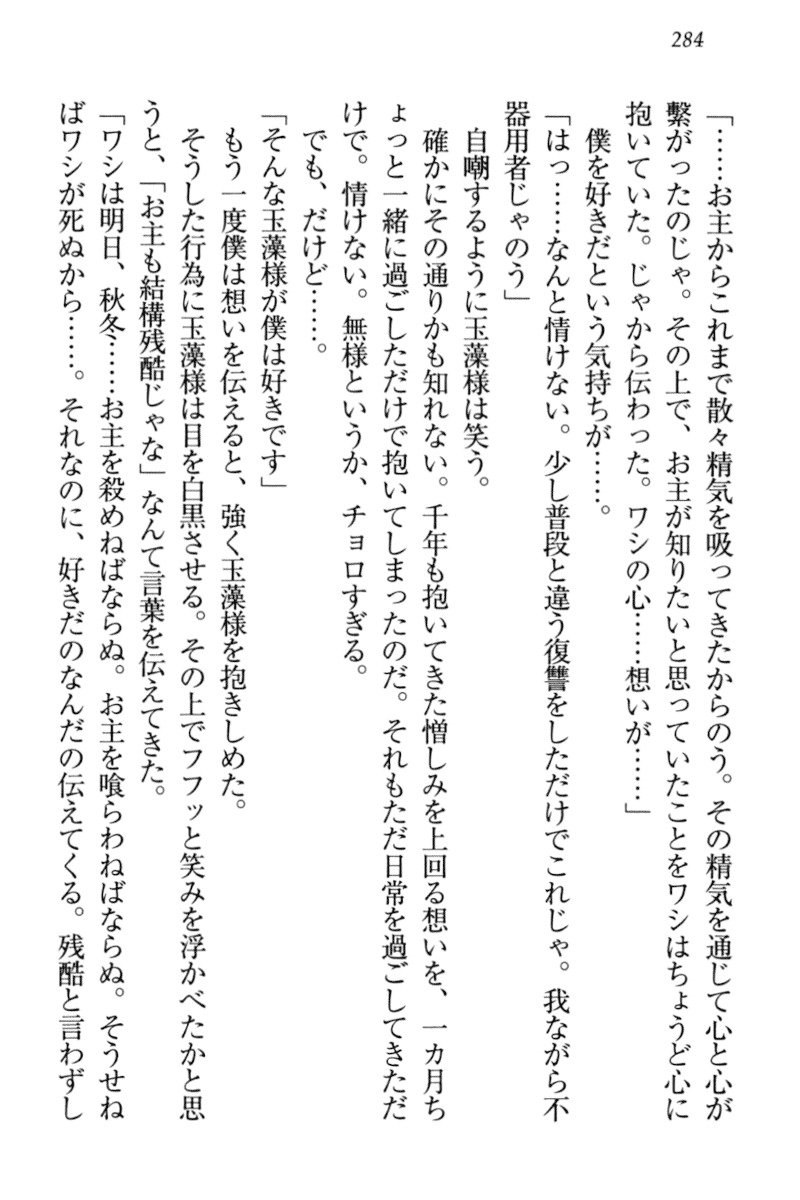 284
「……お主からこれまで散々精気を吸ってきたからのう。その精気を通じて心と心が
繋がったのじゃ。その上で、お主が知りたいと思っていたことをワシはちょうど心に
抱いていた。じゃから伝わった。ワシの心……想いが……」
僕を好きだという気持ちが……。
「はっ……なんと情けない。少し普段と違う復讐をしただけでこれじゃ。我ながら不
器用者じゃのう」
自嘲するように玉藻様は笑う。
確かにその通りかも知れない。千年も抱いてきた憎しみを上回る想いを、一カ月ち
ょっと一緒に過ごしただけで抱いてしまったのだ。それもただ日常を過ごしてきただ
けで。情けない。無様というか、チョロすぎる。
でも、だけど……。
「そんな玉藻様が僕は好きです」
もう一度僕は想いを伝えると、強く玉藻様を抱きしめた。
そうした行為に玉藻様は目を白黒させる。その上でフフッと笑みを浮かべたかと思
うと、「お主も結構残酷じゃな」なんて言葉を伝えてきた。
「ワシは明日、秋冬……お主を殺めねばならぬ。お主を喰らわねばならぬ。そうせね
ばワシが死ぬから……。それなのに、好きだのなんだの伝えてくる。残酷と言わずし